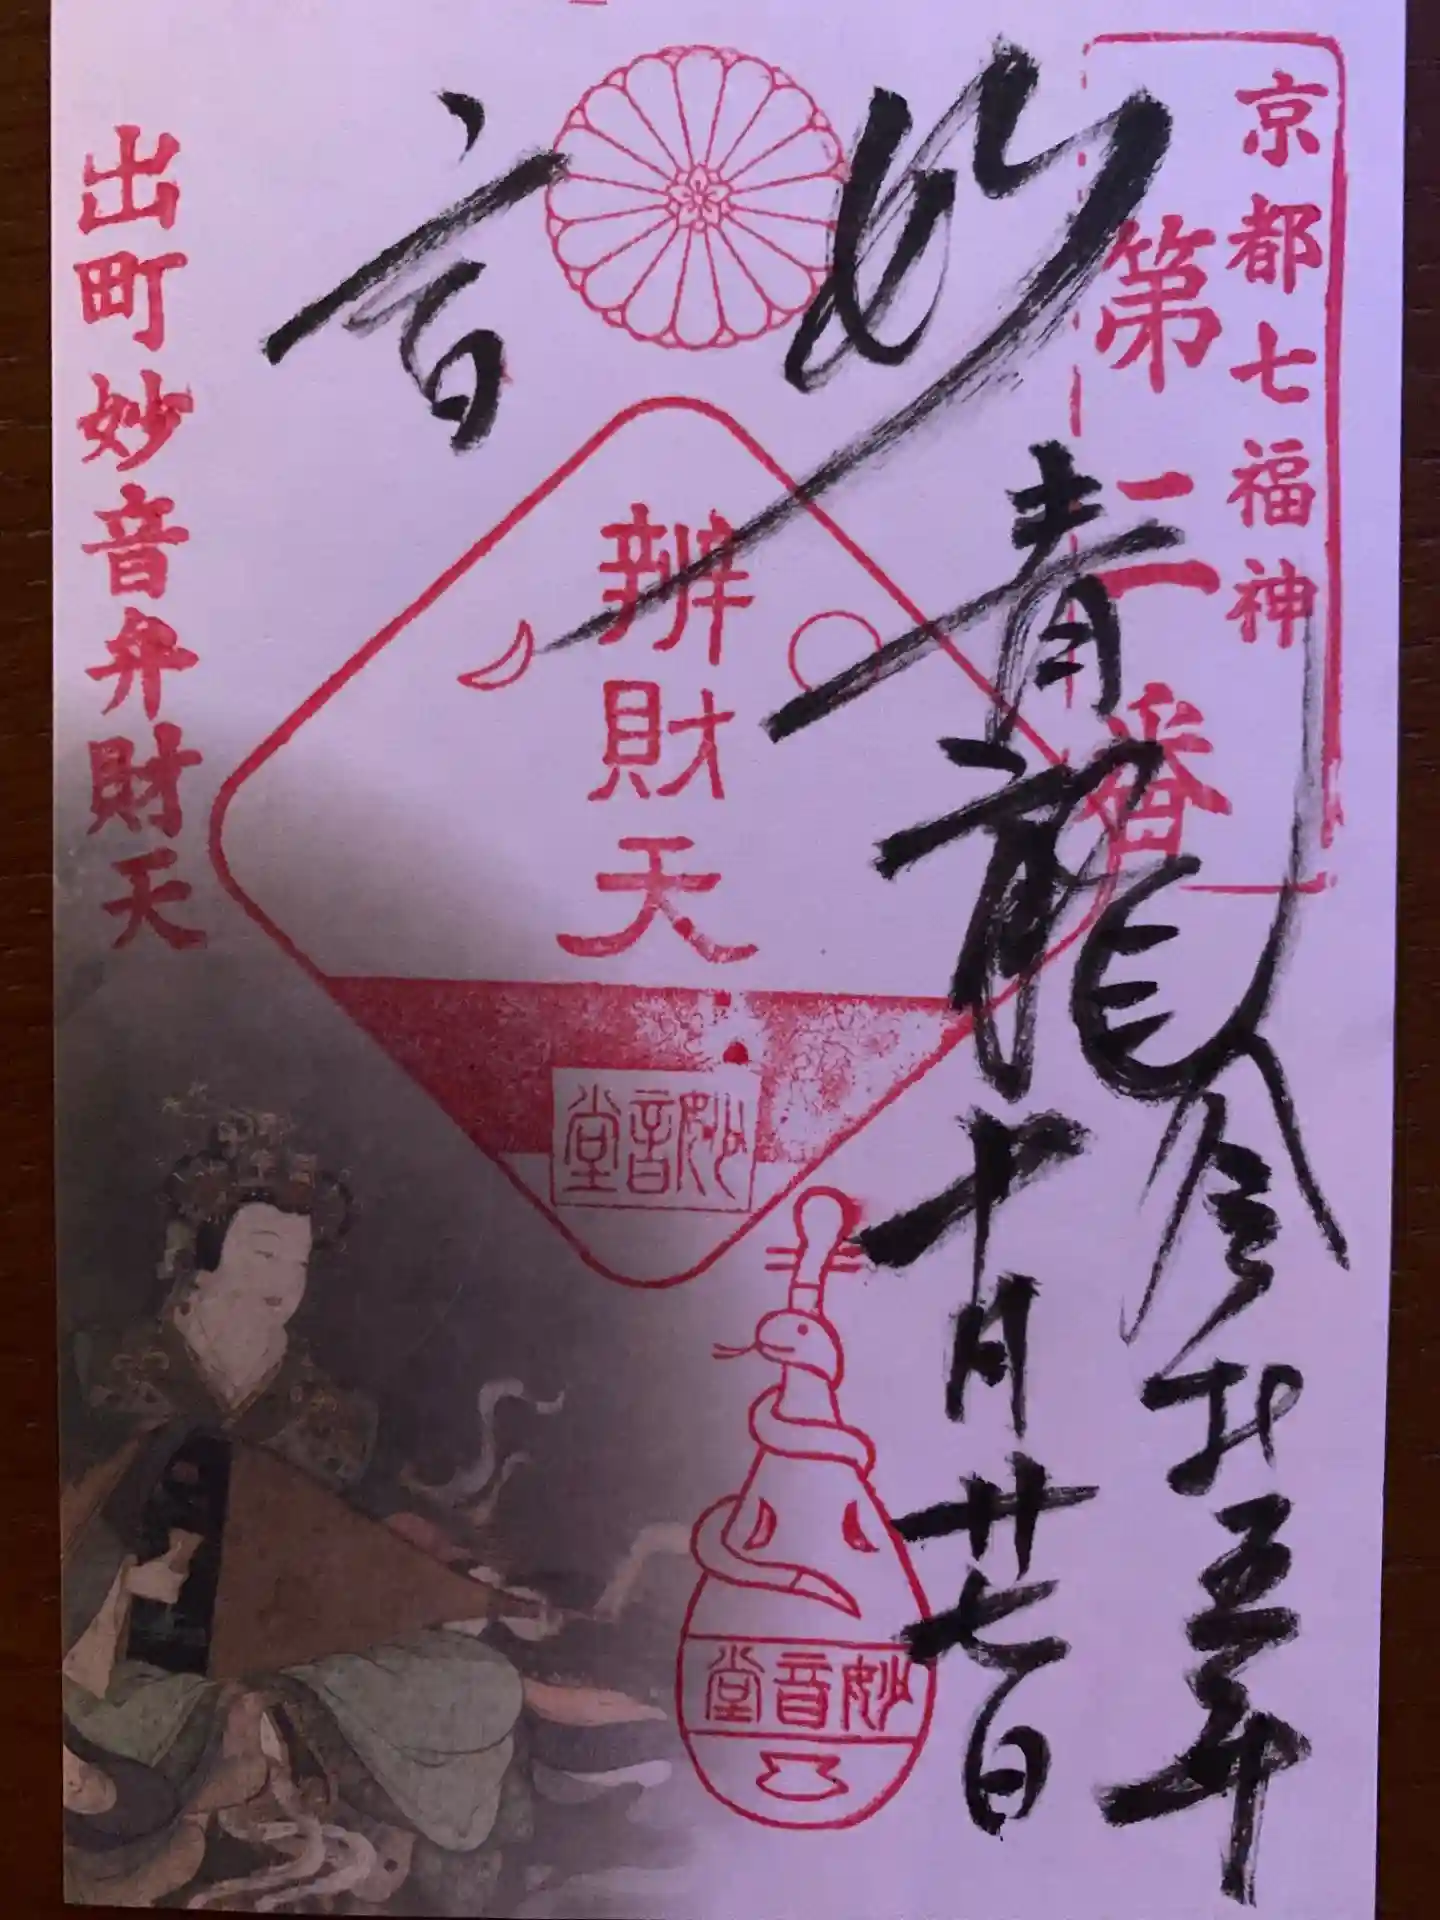 京都七福神
第二番
令和五年
十月廿七日
青龍
妙音
辨財天
妙音堂
妙音堂
出町妙音弁財天